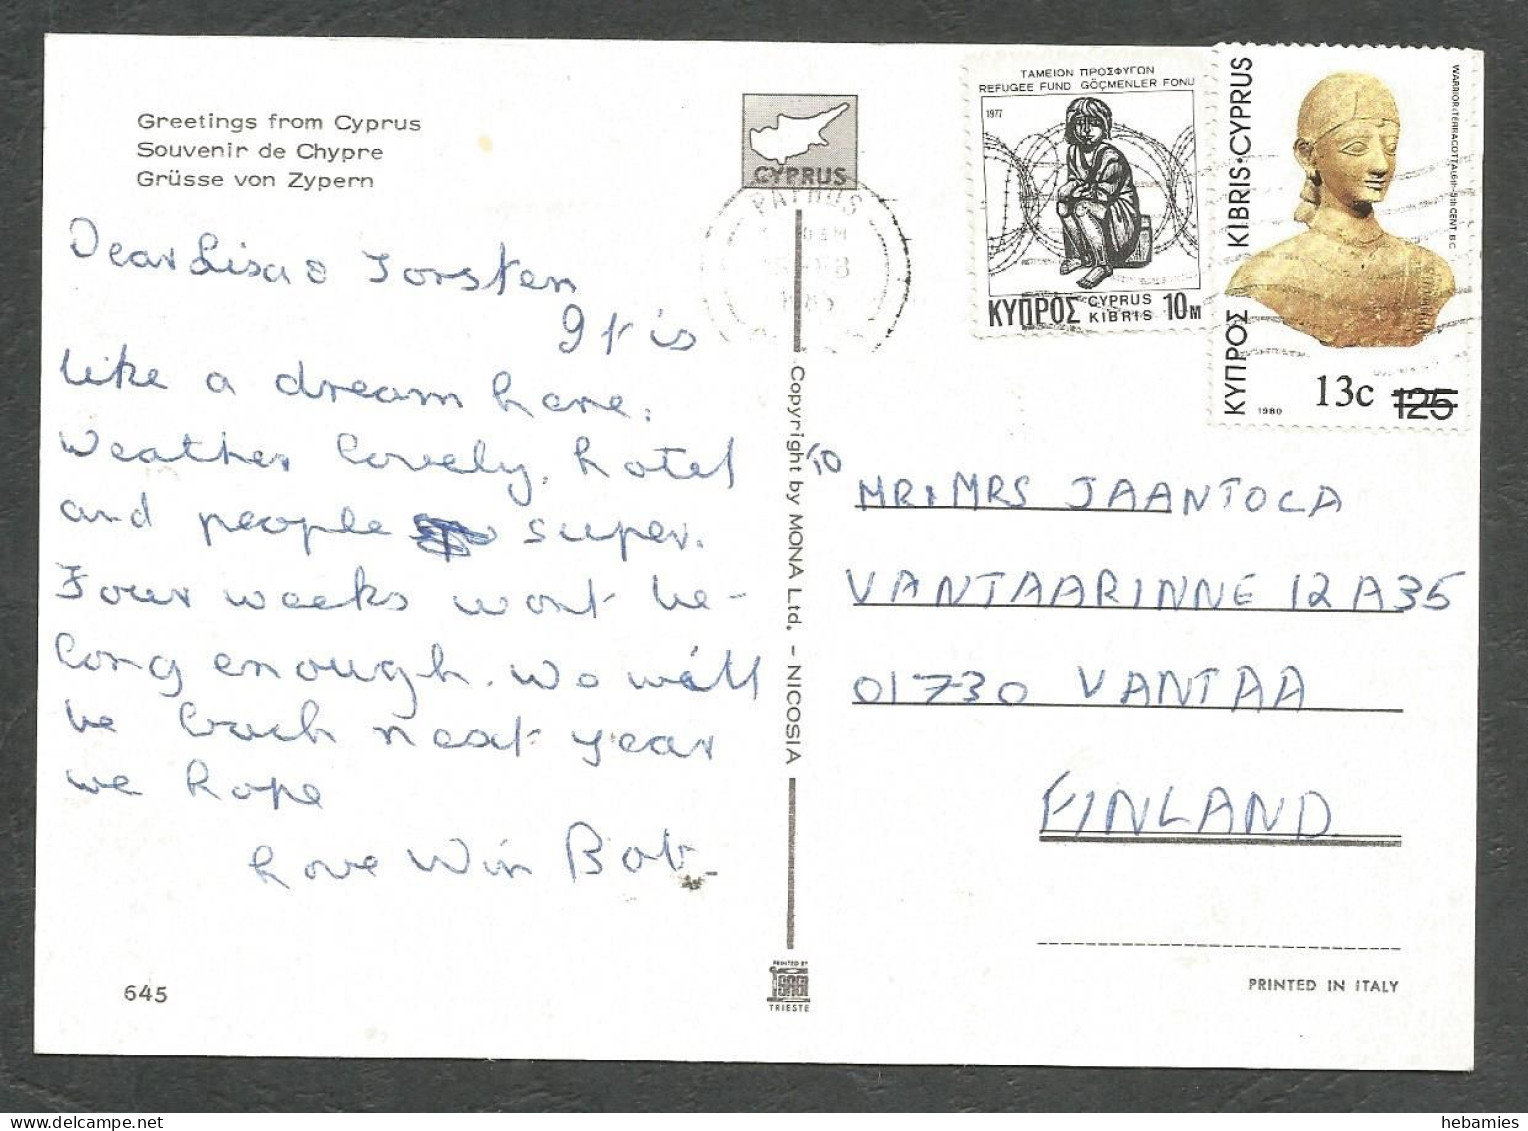 Greetings from Cyprus
Souvenir de Chypre
Grüsse von Zypern
Dear Lisa & Torsten
It is
like a dream here.
Weather lovely, hotel
and people super.
Four weeks wont be-
long enough. We will
be back next year
we hope
Love Win Bob
645
CYPRUS
PAPHOS
Copyright by MONA Ltd. - NICOSIA
PRINTED BY
TRIESTE
ΤΑΜΕΙΟΝ ΠΡΟΣΦΥΓΩΝ
REFUGEE FUND GÖÇMENLER FONU
1977
ΚΥΠΡΟΣ CYPRUS KIBRIS 10M
ΚΥΠΡΟΣ KIBRIS·CYPRUS
WARRIOR (TERRACOTTA) 6th-5th CENT. B.C.
1980
13c 125
TO
MR & MRS JAANTOLA
VANTAARINNE 12 A35
01730 VANTAA
FINLAND
PRINTED IN ITALY
hebamies